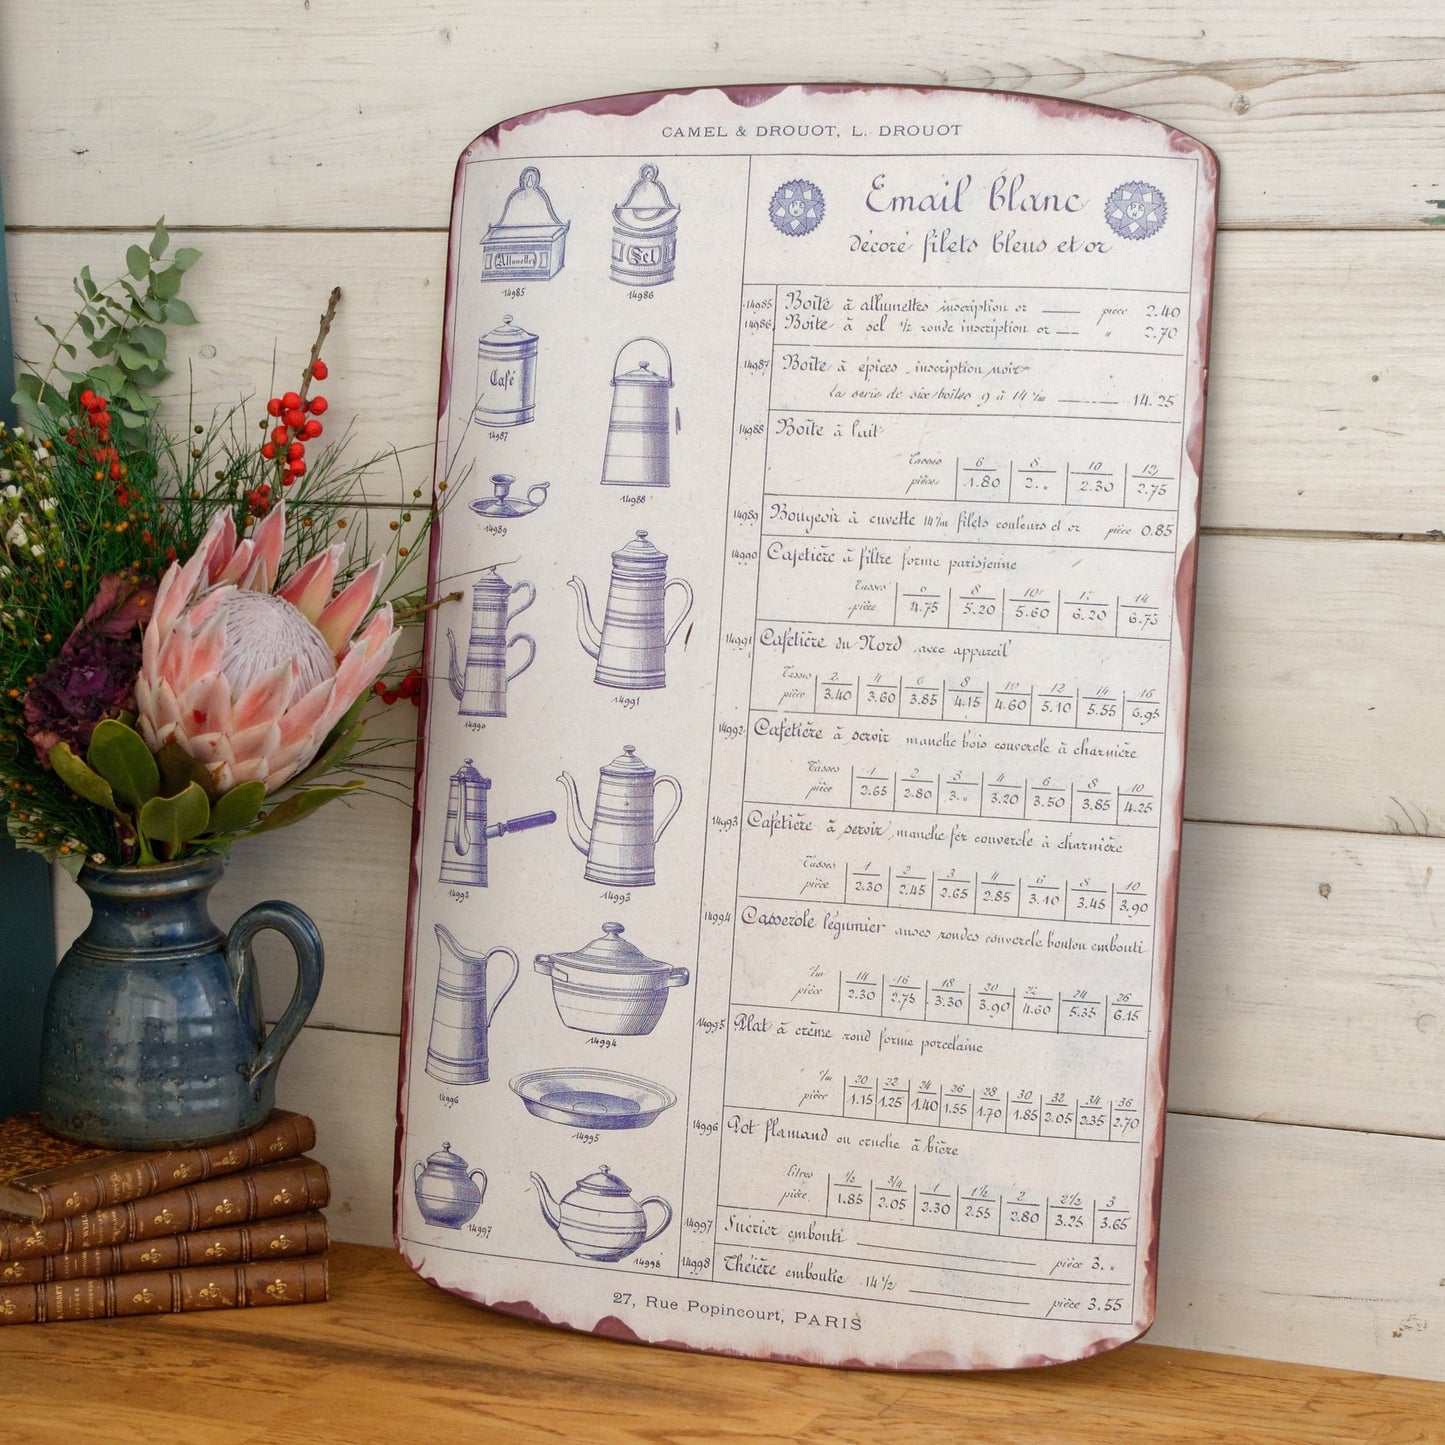 CAMEL & DROUOT, L. DROUOT
Allumettes
14985
Sel
14986
Café
14987
14988
14989
14990
14991
14992
14993
14994
14996
14995
14997
14998
Email blanc
décoré filets bleus et or
14985 Boîte à allumettes inscription or pièce 2.40
14986 Boîte à sel ½ ronde inscription or " 2.70
14987 Boîte à épices inscription noir
La série de six boîtes 9 à 14 c/m 14.25
14988 Boîte à lait
Tasses 6 8 10 12
pièce 1.80 2. " 2.30 2.75
14989 Bougeoir à cuvette 14 c/m filets couleurs et or pièce 0.85
14990 Cafetière à filtre forme parisienne
Tasses 6 8 10 12 14
pièce 4.75 5.20 5.60 6.20 6.75
14991 Cafetière du Nord avec appareil
Tasses 2 4 6 8 10 12 14 16
pièce 3.40 3.60 3.85 4.15 4.60 5.10 5.55 6.95
14992 Cafetière à servir manche bois couvercle à charnière
Tasses 1 2 3 4 6 8 10
pièce 2.65 2.80 3. " 3.20 3.50 3.85 4.25
14993 Cafetière à servir manche fer couvercle à charnière
Tasses 1 2 3 4 6 8 10
pièce 2.30 2.45 2.65 2.85 3.10 3.45 3.90
14994 Casserole légumier anses rondes couvercle bouton embouti
c/m 14 16 18 20 22 24 26
pièce 2.30 2.75 3.30 3.90 4.60 5.35 6.15
14995 Plat à crème rond forme porcelaine
c/m 20 22 24 26 28 30 32 34 36
pièce 1.15 1.25 1.40 1.55 1.70 1.85 2.05 2.35 2.70
14996 Pot flamand ou cruche à bière
Litres ½ 3/4 1 1½ 2 2½ 3
pièce 1.85 2.05 2.30 2.55 2.80 3.25 3.65
14997 Sucrier embouti pièce 3. "
14998 Théière emboutie 14½ pièce 3.55
27, Rue Popincourt, PARIS